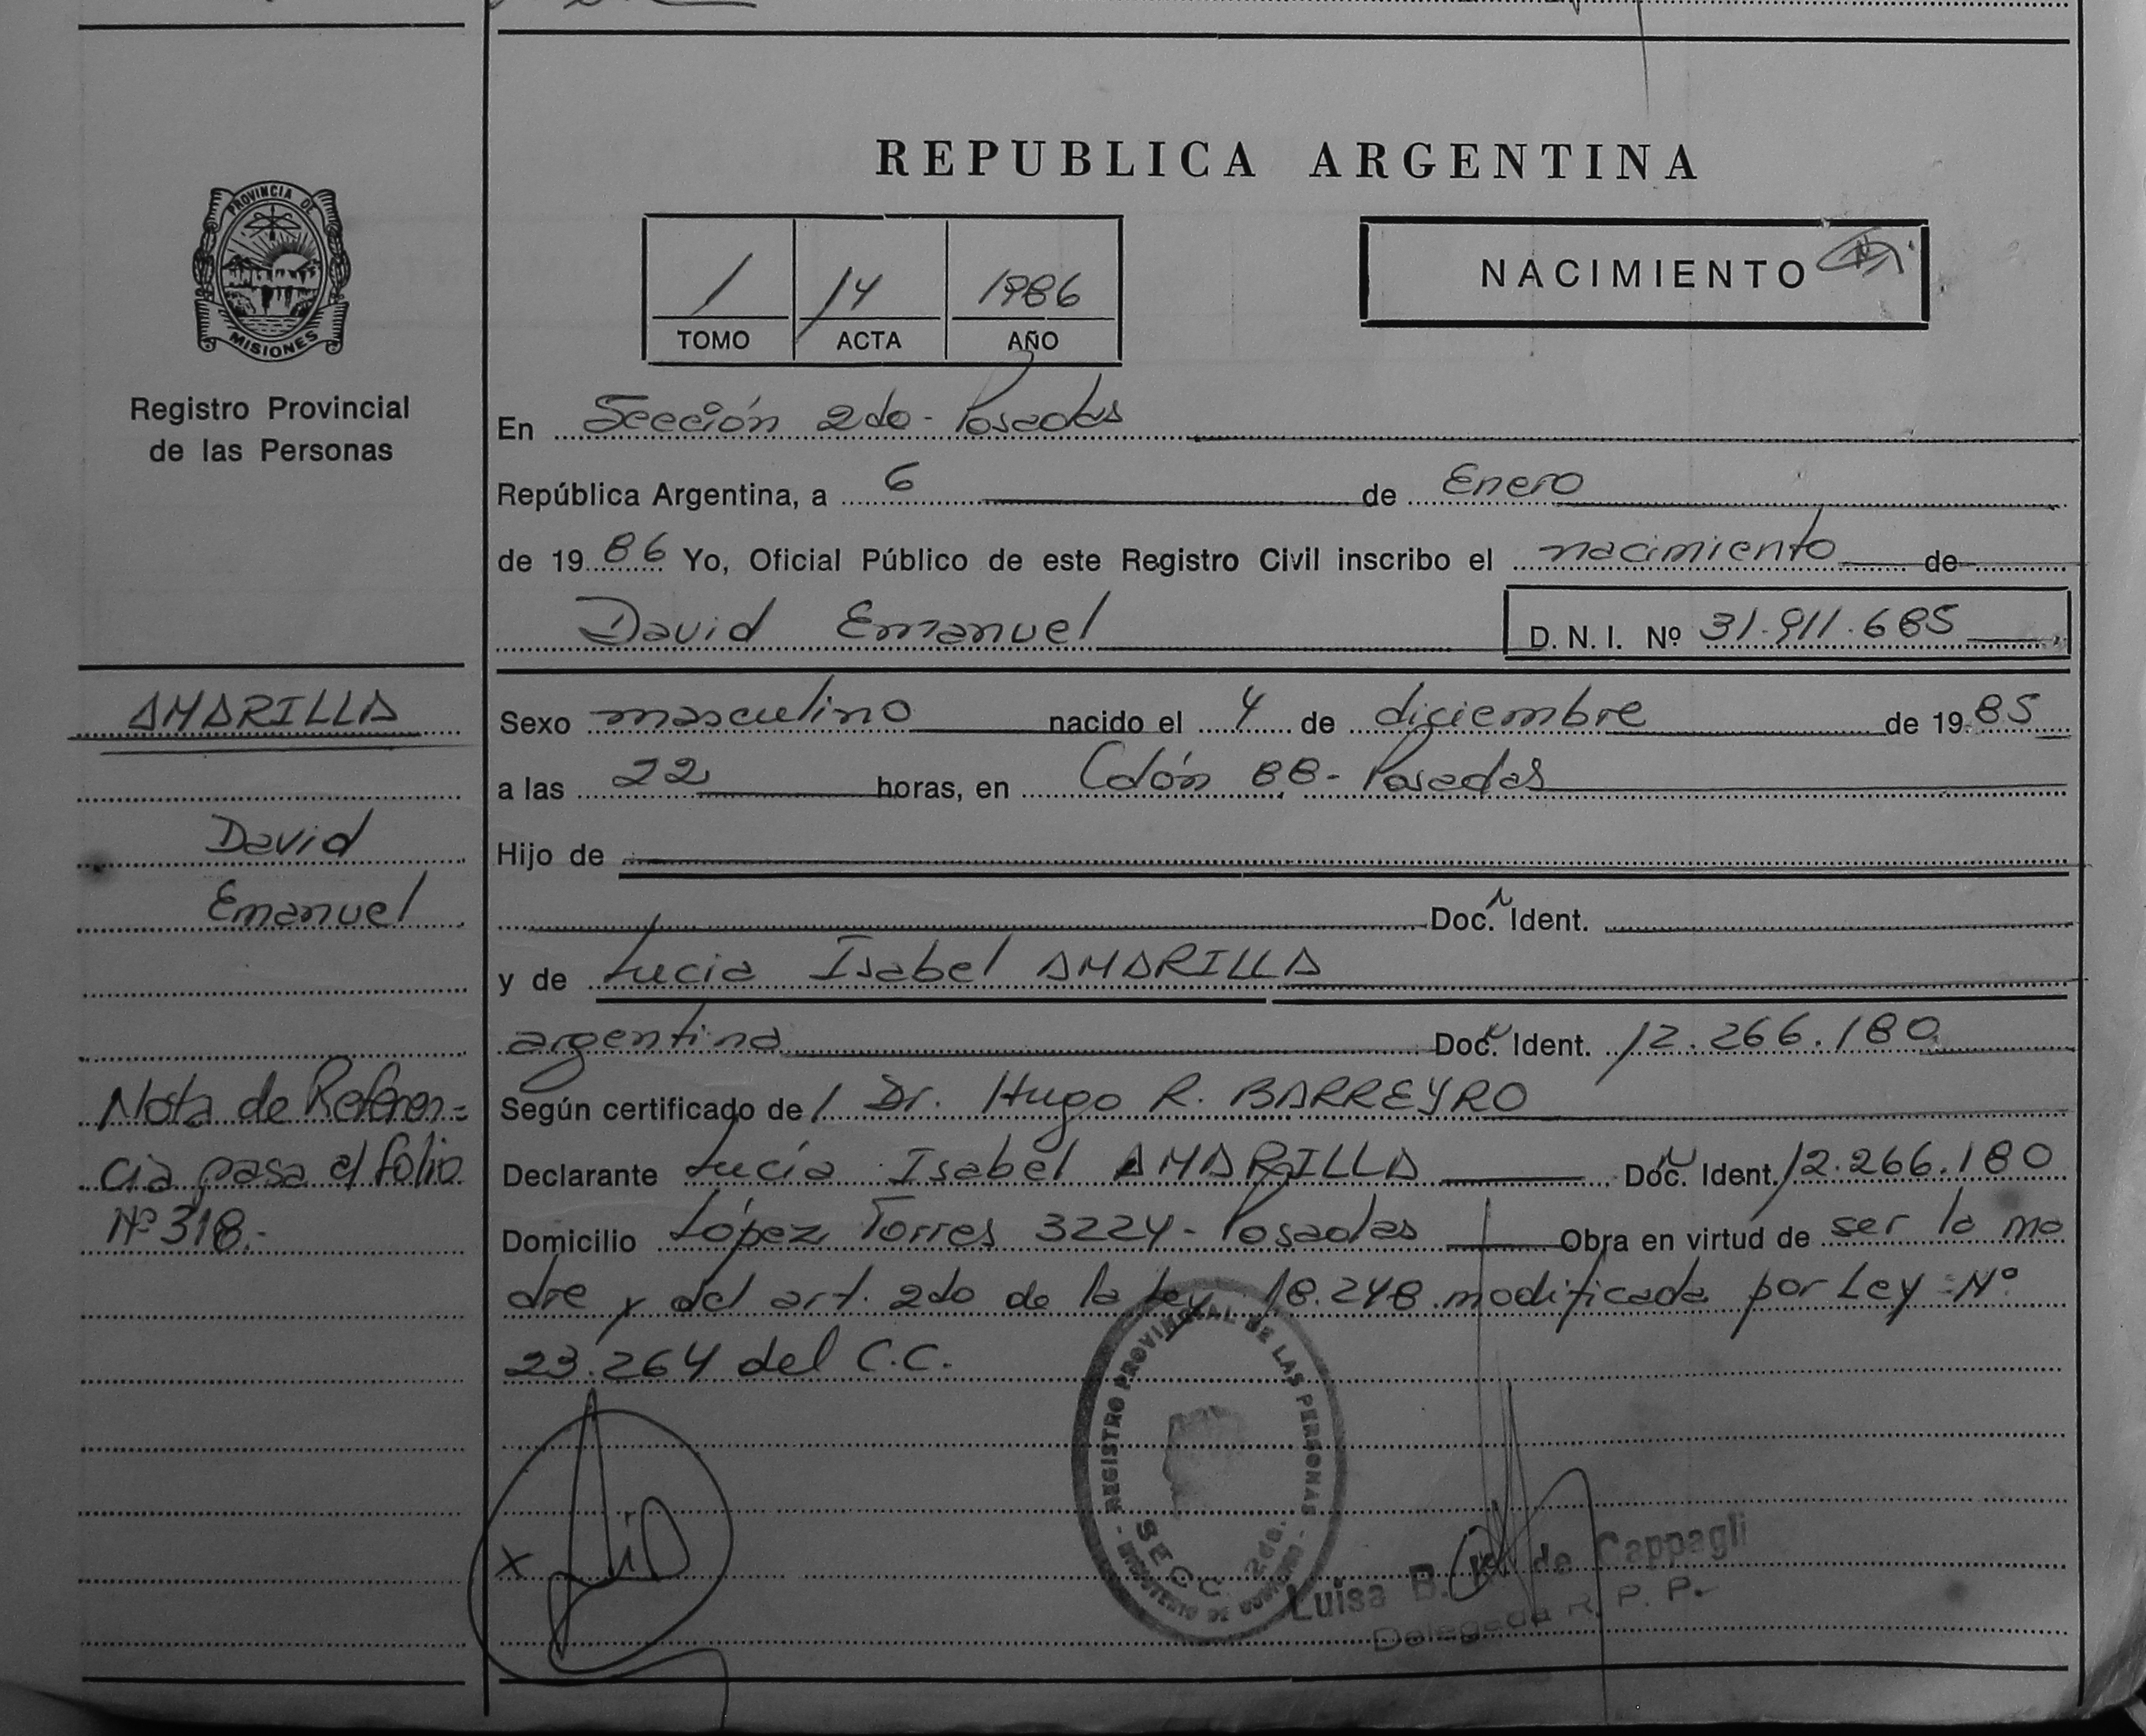 REPUBLICA ARGENTINA
PROVINCIA DE
MISIONES
Registro Provincial
de las Personas
1 14 1986
TOMO ACTA AÑO
NACIMIENTO
En Sección 2do - Posadas
República Argentina, a 6 de Enero
de 1986 Yo, Oficial Público de este Registro Civil inscribo el nacimiento de
David Emanuel D. N. I. Nº 31.911.685
AMARILLA
David
Emanuel
Nota de Referen=
cia pasa al folio
Nº 318.-
Sexo masculino nacido el 4 de diciembre de 1985
a las 22 horas, en Colón 88 - Posadas
Hijo de
Doc. Ident.
y de Lucia Isabel AMARILLA
argentina Doc. Ident. 12.266.180
Según certificado de l Dr. Hugo R. BARREYRO
Declarante Lucía Isabel AMARILLA Doc. Ident. 12.266.180
Domicilio López Torres 3224 - Posadas Obra en virtud de ser la ma
dre y del art. 2do de la Ley 18.248 modificada por Ley Nº
23.264 del C.C.
REGISTRO PROVINCIAL DE LAS PERSONAS
SECC. 2da.
MINISTERIO DE GOBIERNO
x
Luisa B. de Cappagli
Delegada R. P. P.